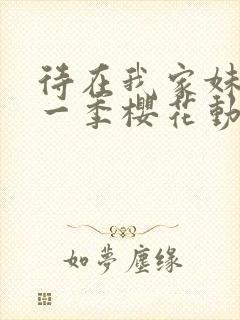 待在我家妹
一季樱花動
如夢塵缘